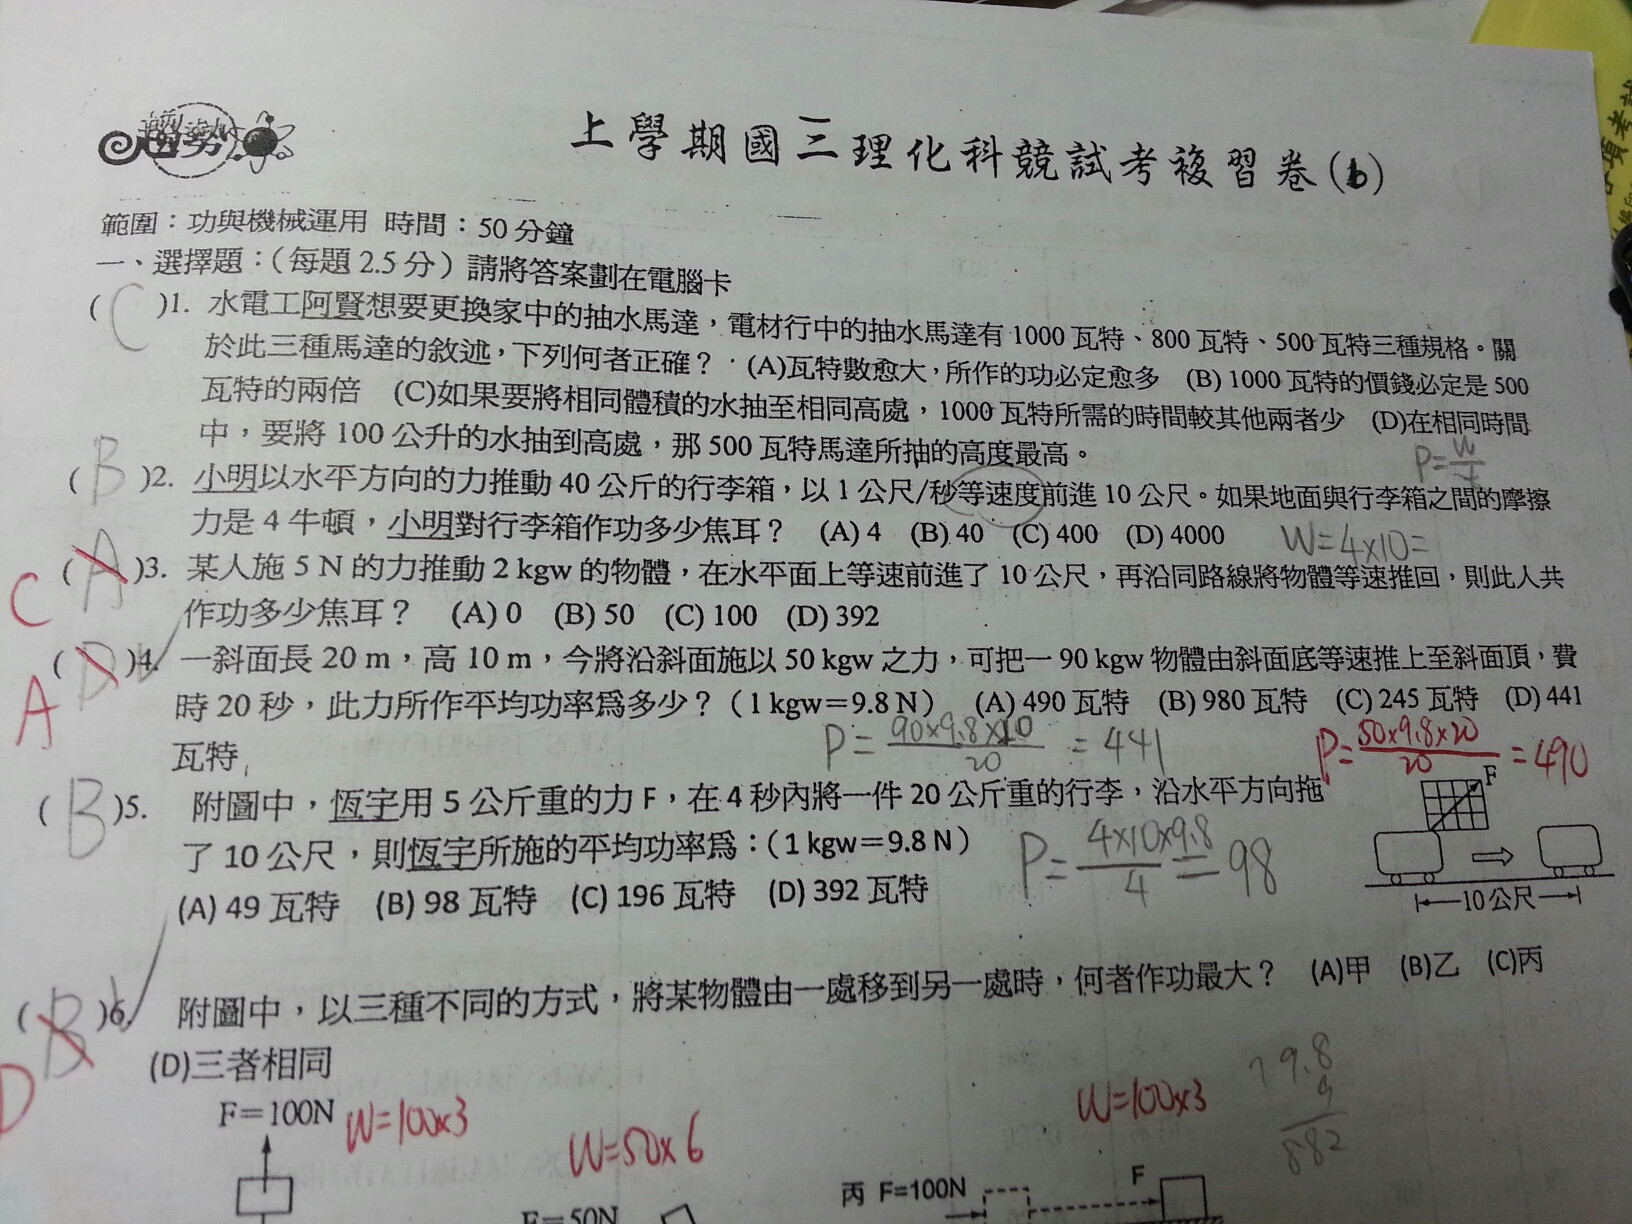 趨勢
上學期國三理化科競試考複習卷(b)
範圍：功與機械運用 時間：50分鐘
一、選擇題：（每題 2.5 分）請將答案劃在電腦卡
( C )1. 水電工阿賢想要更換家中的抽水馬達，電材行中的抽水馬達有 1000 瓦特、800 瓦特、500 瓦特三種規格。關
於此三種馬達的敘述，下列何者正確？ (A)瓦特數愈大，所作的功必定愈多 (B) 1000 瓦特的價錢必定是 500
瓦特的兩倍 (C)如果要將相同體積的水抽至相同高處，1000 瓦特所需的時間較其他兩者少 (D)在相同時間
中，要將 100 公升的水抽到高處，那 500 瓦特馬達所抽的高度最高。
P=W/t
( B )2. 小明以水平方向的力推動 40 公斤的行李箱，以 1 公尺/秒等速度前進 10 公尺。如果地面與行李箱之間的摩擦
力是 4 牛頓，小明對行李箱作功多少焦耳？ (A) 4 (B) 40 (C) 400 (D) 4000 W=4×10=
C ( A )3. 某人施 5 N 的力推動 2 kgw 的物體，在水平面上等速前進了 10 公尺，再沿同路線將物體等速推回，則此人共
作功多少焦耳？ (A) 0 (B) 50 (C) 100 (D) 392
A ( D )4. 一斜面長 20 m，高 10 m，今將沿斜面施以 50 kgw 之力，可把一 90 kgw 物體由斜面底等速推上至斜面頂，費
時 20 秒，此力所作平均功率為多少？（1 kgw＝9.8 N） (A) 490 瓦特 (B) 980 瓦特 (C) 245 瓦特 (D) 441
瓦特
P=90×9.8×10/20=441
P=50×9.8×20/20=490
( B )5. 附圖中，恆宇用 5 公斤重的力 F，在 4 秒內將一件 20 公斤重的行李，沿水平方向拖
了 10 公尺，則恆宇所施的平均功率為：（1 kgw＝9.8 N）
(A) 49 瓦特 (B) 98 瓦特 (C) 196 瓦特 (D) 392 瓦特
P=4×10×9.8/4=98
F
10公尺
D ( B )6. 附圖中，以三種不同的方式，將某物體由一處移到另一處時，何者作功最大？ (A)甲 (B)乙 (C)丙
(D)三者相同
9.8
9
882
F＝100N W=100×3
W=50×6
W=100×3
F=50N
丙 F=100N F